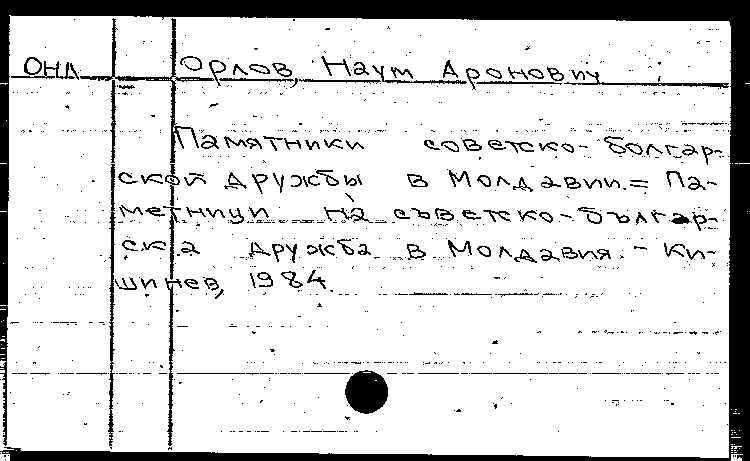 ОНЛ Орлов, Наум Аронович
Памятники советско-болгар-
ской дружбы в Молдавии. = Па-
метници на съветско-българ-
ска дружба в Молдавия. - Ки-
шинев, 1984.